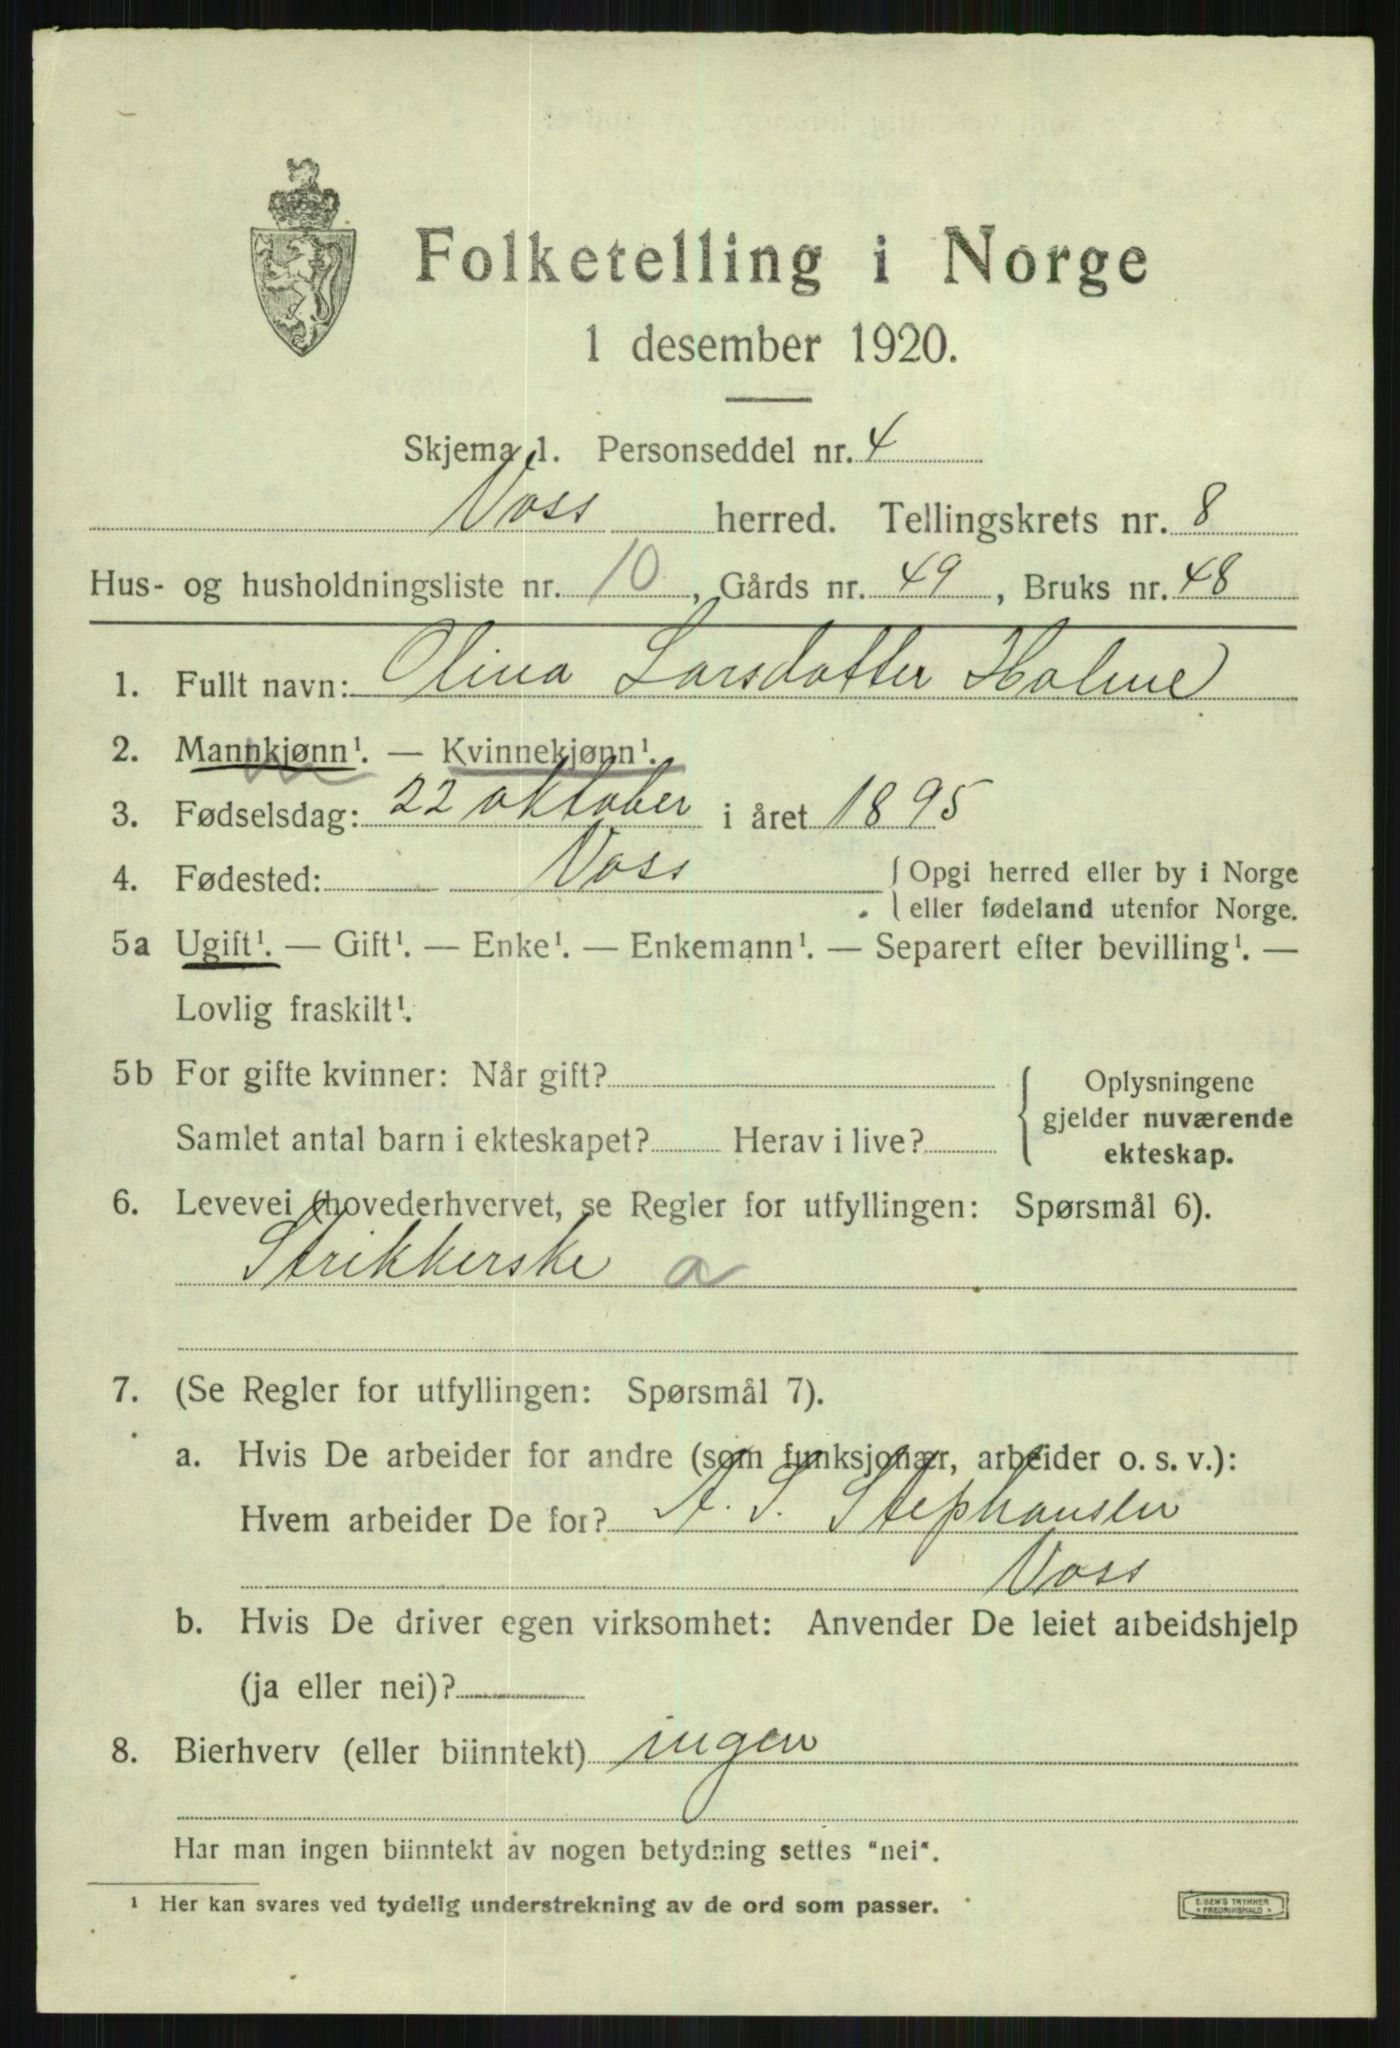 Folketelling i Norge
1 desember 1920.
Skjema 1. Personseddel nr. 4
Voss herred. Tellingskrets nr. 8
Hus- og husholdningsliste nr. 10, Gårds nr. 49, Bruks nr. 48
1. Fullt navn: Olina Larsdotter Holme
2. Mannkjønn¹. — Kvinnekjønn¹.
3. Fødselsdag: 22 oktober i året 1895
4. Fødested: Voss { Opgi herred eller by i Norge
eller fødeland utenfor Norge.
5a Ugift¹. — Gift¹. — Enke¹. — Enkemann¹. — Separert efter bevilling¹. —
Lovlig fraskilt¹.
5b For gifte kvinner: Når gift? { Oplysningene
gjelder nuværende
Samlet antal barn i ekteskapet? Herav i live?
ekteskap.
6. Levevei (hovederhvervet, se Regler for utfyllingen: Spørsmål 6).
Strikkerske a
7. (Se Regler for utfyllingen: Spørsmål 7).
a. Hvis De arbeider for andre (som funksjonær, arbeider o. s. v.):
Hvem arbeider De for? A. S. Stephansen
Voss
b. Hvis De driver egen virksomhet: Anvender De leiet arbeidshjelp
(ja eller nei)?
8. Bierhverv (eller biinntekt) ingen
Har man ingen biinntekt av nogen betydning settes "nei".
¹ Her kan svares ved tydelig understrekning av de ord som passer.
E. SEM'S TRYKKER
FREDRIKSHALD